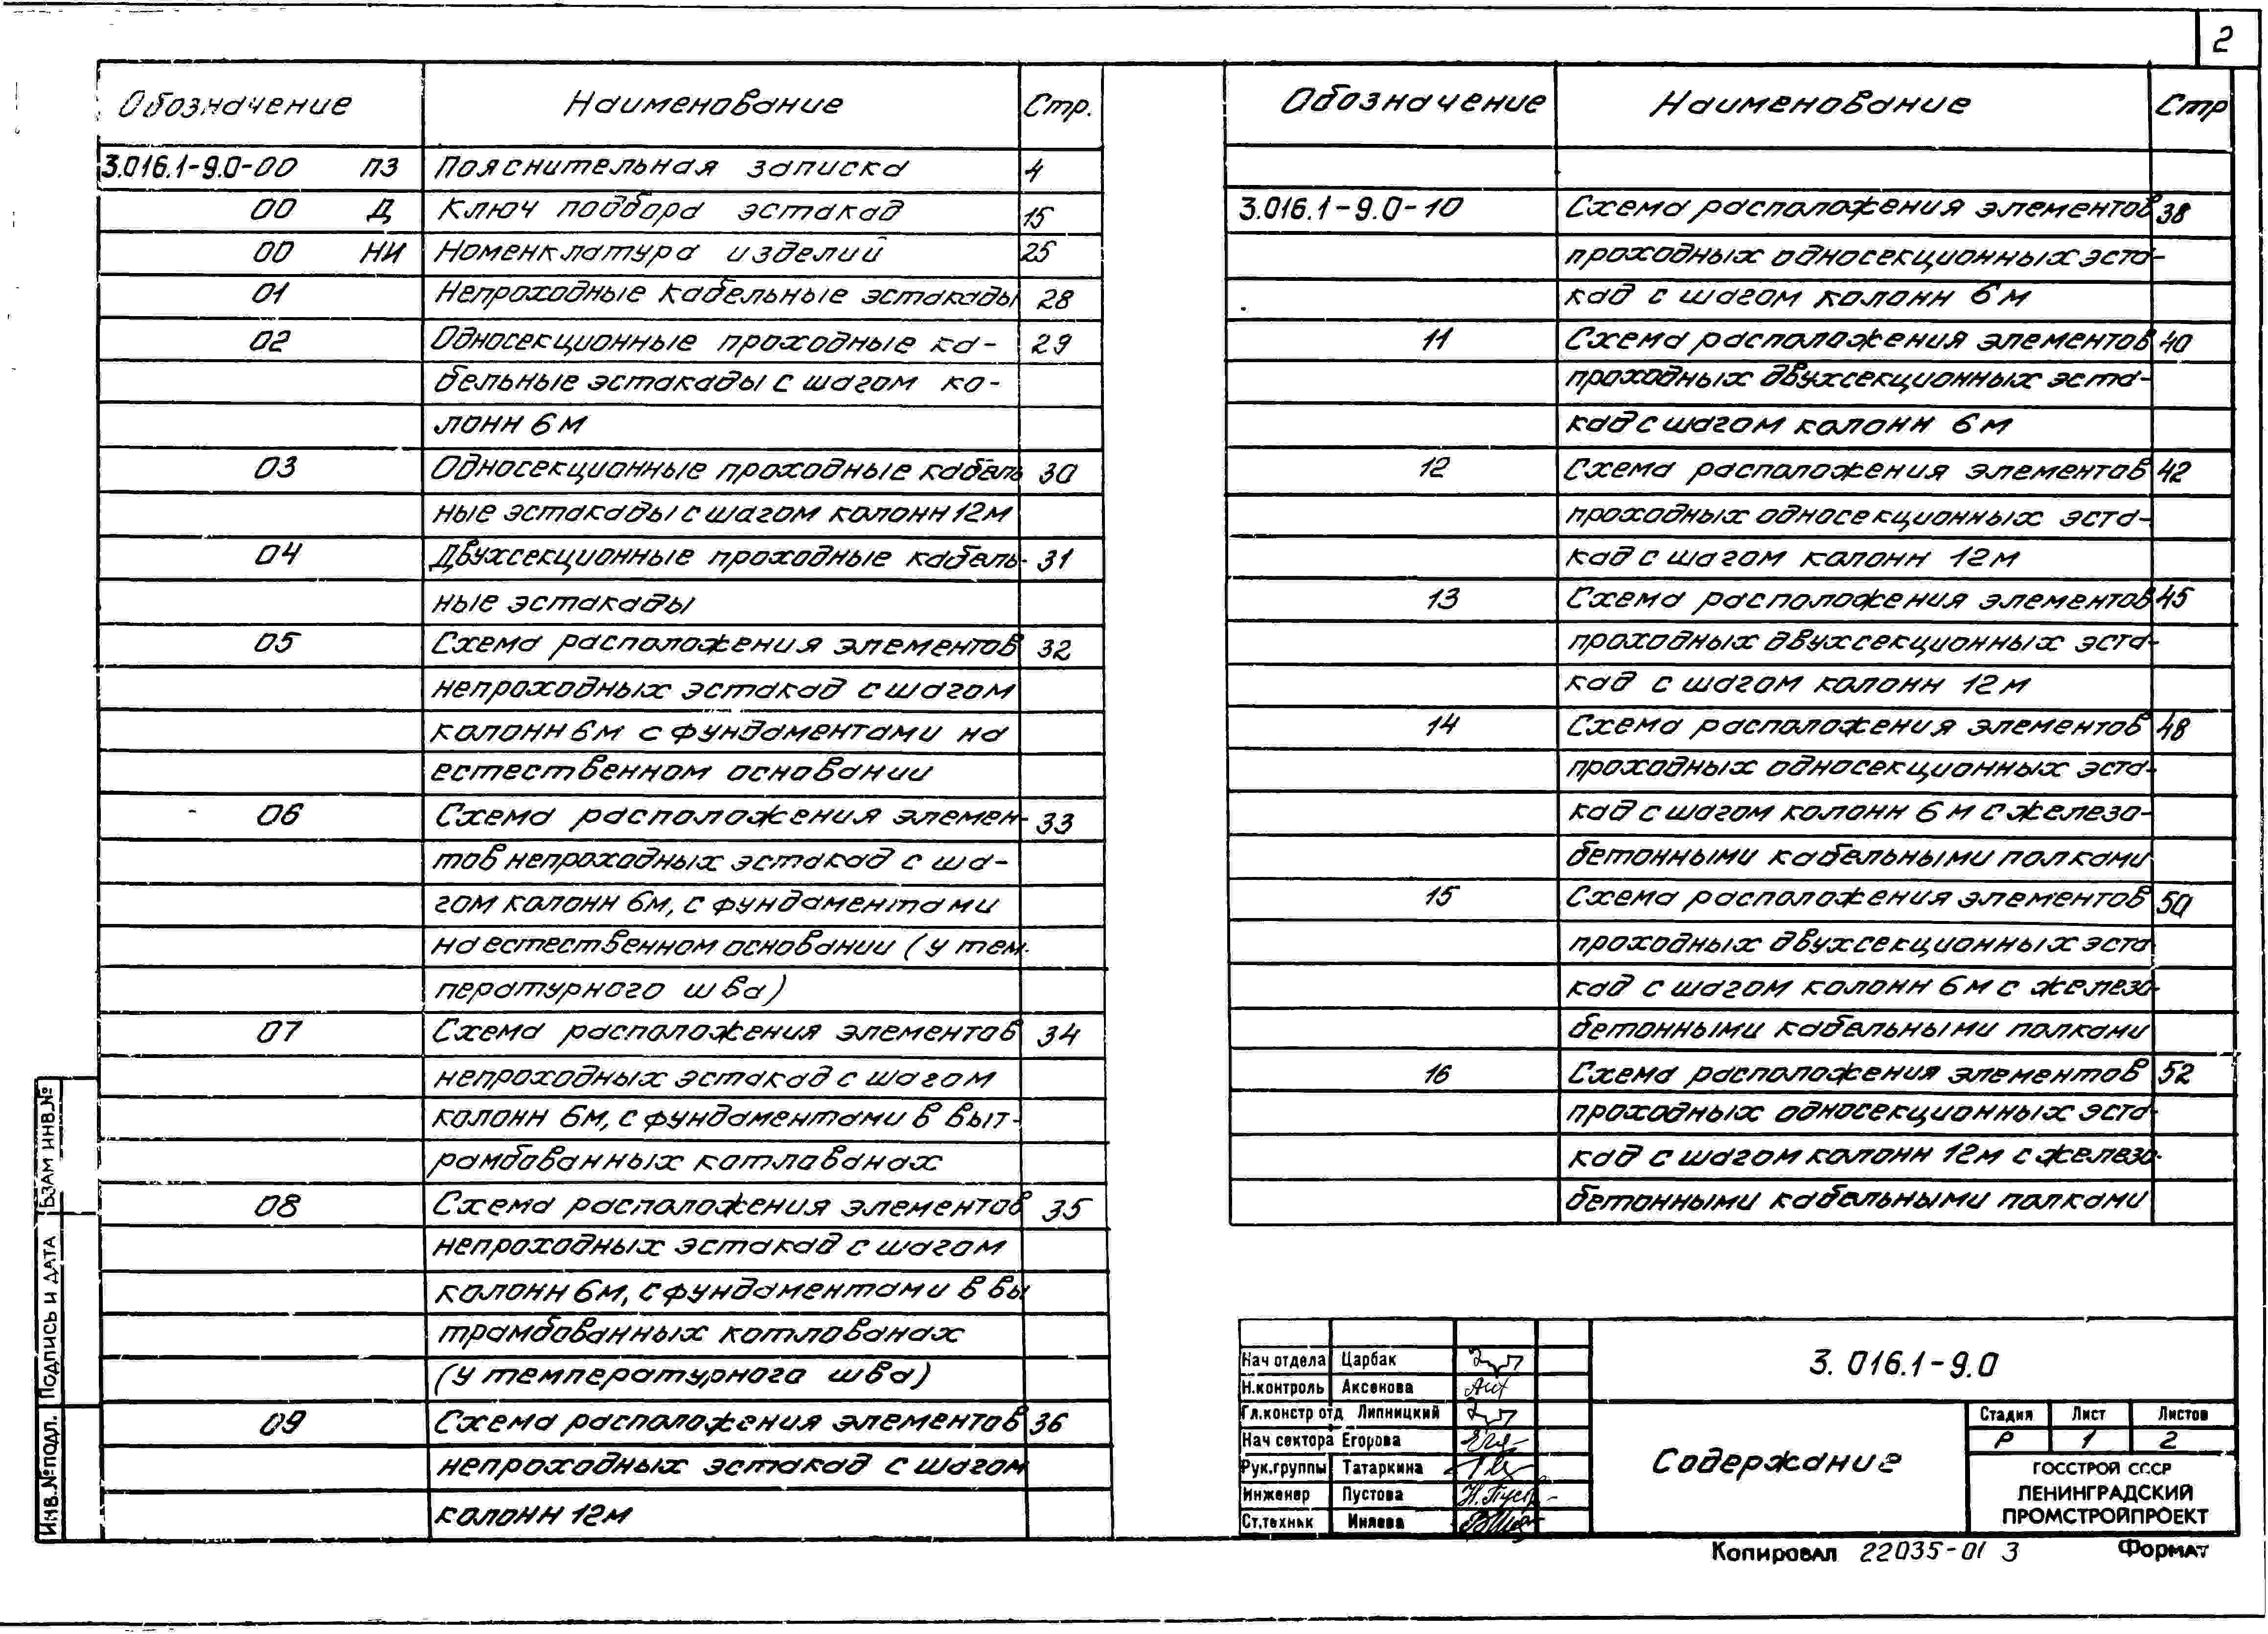 2
Обозначение Наименование Стр.
3.016.1-9.0-00 ПЗ Пояснительная записка 4
00 Д Ключ подбора эстакад 15
00 НИ Номенклатура изделий 25
01 Непроходные кабельные эстакады 28
02 Односекционные проходные ка- 29
бельные эстакады с шагом ко-
лонн 6м
03 Односекционные проходные кабель 30
ные эстакады с шагом колонн 12м
04 Двухсекционные проходные кабель- 31
ные эстакады
05 Схема расположения элементов 32
непроходных эстакад с шагом
колонн 6м с фундаментами на
естественном основании
06 Схема расположения элемен- 33
тов непроходных эстакад с ша-
гом колонн 6м, с фундаментами
на естественном основании (у тем-
пературного шва)
07 Схема расположения элементов 34
непроходных эстакад с шагом
колонн 6м, с фундаментами в выт-
рамбованных котлованах
08 Схема расположения элементов 35
непроходных эстакад с шагом
колонн 6м, с фундаментами в вы
трамбованных котлованах
(у температурного шва)
09 Схема расположения элементов 36
непроходных эстакад с шагом
колонн 12м
Обозначение Наименование Стр
3.016.1-9.0-10 Схема расположения элементов 38
проходных односекционных эста-
кад с шагом колонн 6м
11 Схема расположения элементов 40
проходных двухсекционных эста-
кад с шагом колонн 6м
12 Схема расположения элементов 42
проходных односекционных эста-
кад с шагом колонн 12м
13 Схема расположения элементов 45
проходных двухсекционных эста-
кад с шагом колонн 12м
14 Схема расположения элементов 48
проходных односекционных эста-
кад с шагом колонн 6м с железо-
бетонными кабельными полками
15 Схема расположения элементов 50
проходных двухсекционных эста
кад с шагом колонн 6м с железо-
бетонными кабельными полками
16 Схема расположения элементов 52
проходных односекционных эста-
кад с шагом колонн 12м с железо-
бетонными кабельными полками
Взам инв.№
Подпись и дата
Инв.№подл.
Нач отдела Царбак
Н.контроль Аксенова
Гл.констр отд Липницкий
Нач сектора Егорова
Рук.группы Татаркина
Инженер Пустова
Ст.техник
3.016.1-9.0
Содержание
Стадия Лист Листов
Р 1 2
ГОССТРОЙ СССР
ЛЕНИНГРАДСКИЙ
ПРОМСТРОЙПРОЕКТ
Копировал 22035-01 3 Формат